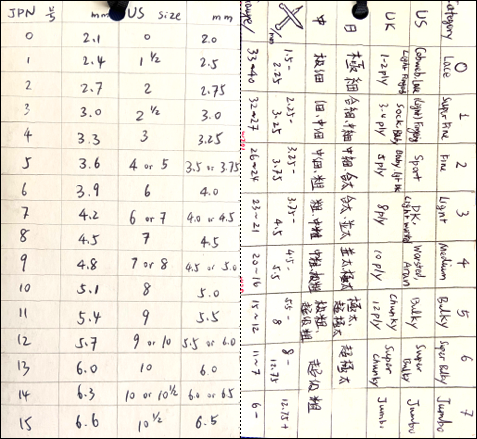 JPN 号 mm US size mm
0 2.1 0 2.0
1 2.4 1 1/2 2.5
2 2.7 2 2.75
3 3.0 2 1/2 3.0
4 3.3 3 3.25
5 3.6 4 or 5 3.5 or 3.75
6 3.9 6 4.0
7 4.2 6 or 7 4.0 or 4.5
8 4.5 7 4.5
9 4.8 7 or 8 4.5 or 5.0
10 5.1 8 5.0
11 5.4 9 5.5
12 5.7 9 or 10 5.5 or 6.0
13 6.0 10 6.0
14 6.3 10 or 10 1/2 6.0 or 6.5
15 6.6 10 1/2 6.5
Category 0 1 2 3 4 5 6 7
Lace Super Fine Fine Light Medium Bulky Super Bulky Jumbo
US Cobweb, Lace, Light Fingering Sock, Baby Sport DK, Light worsted Worsted, Aran Bulky Super Bulky Jumbo
UK 1-2 ply 3-4 ply 5 ply 8 ply 10 ply Chunky 12 ply Super Chunky Jumbo
日 極細 合細, 中細 中細, 合太 合太, 並太 並太, 極太 極太 超極太 超極太
中 极细 细, 中细 中细, 粗 粗, 中粗 中粗, 极粗 极粗, 超级粗 超级粗
mm 1.5-2.25 2.25-3.25 3.25-3.75 3.75-4.5 4.5-5.5 5.5-8 8-12.75 12.75+
33~40 32~27 26~24 23~21 20~16 15~12 11~7 6-